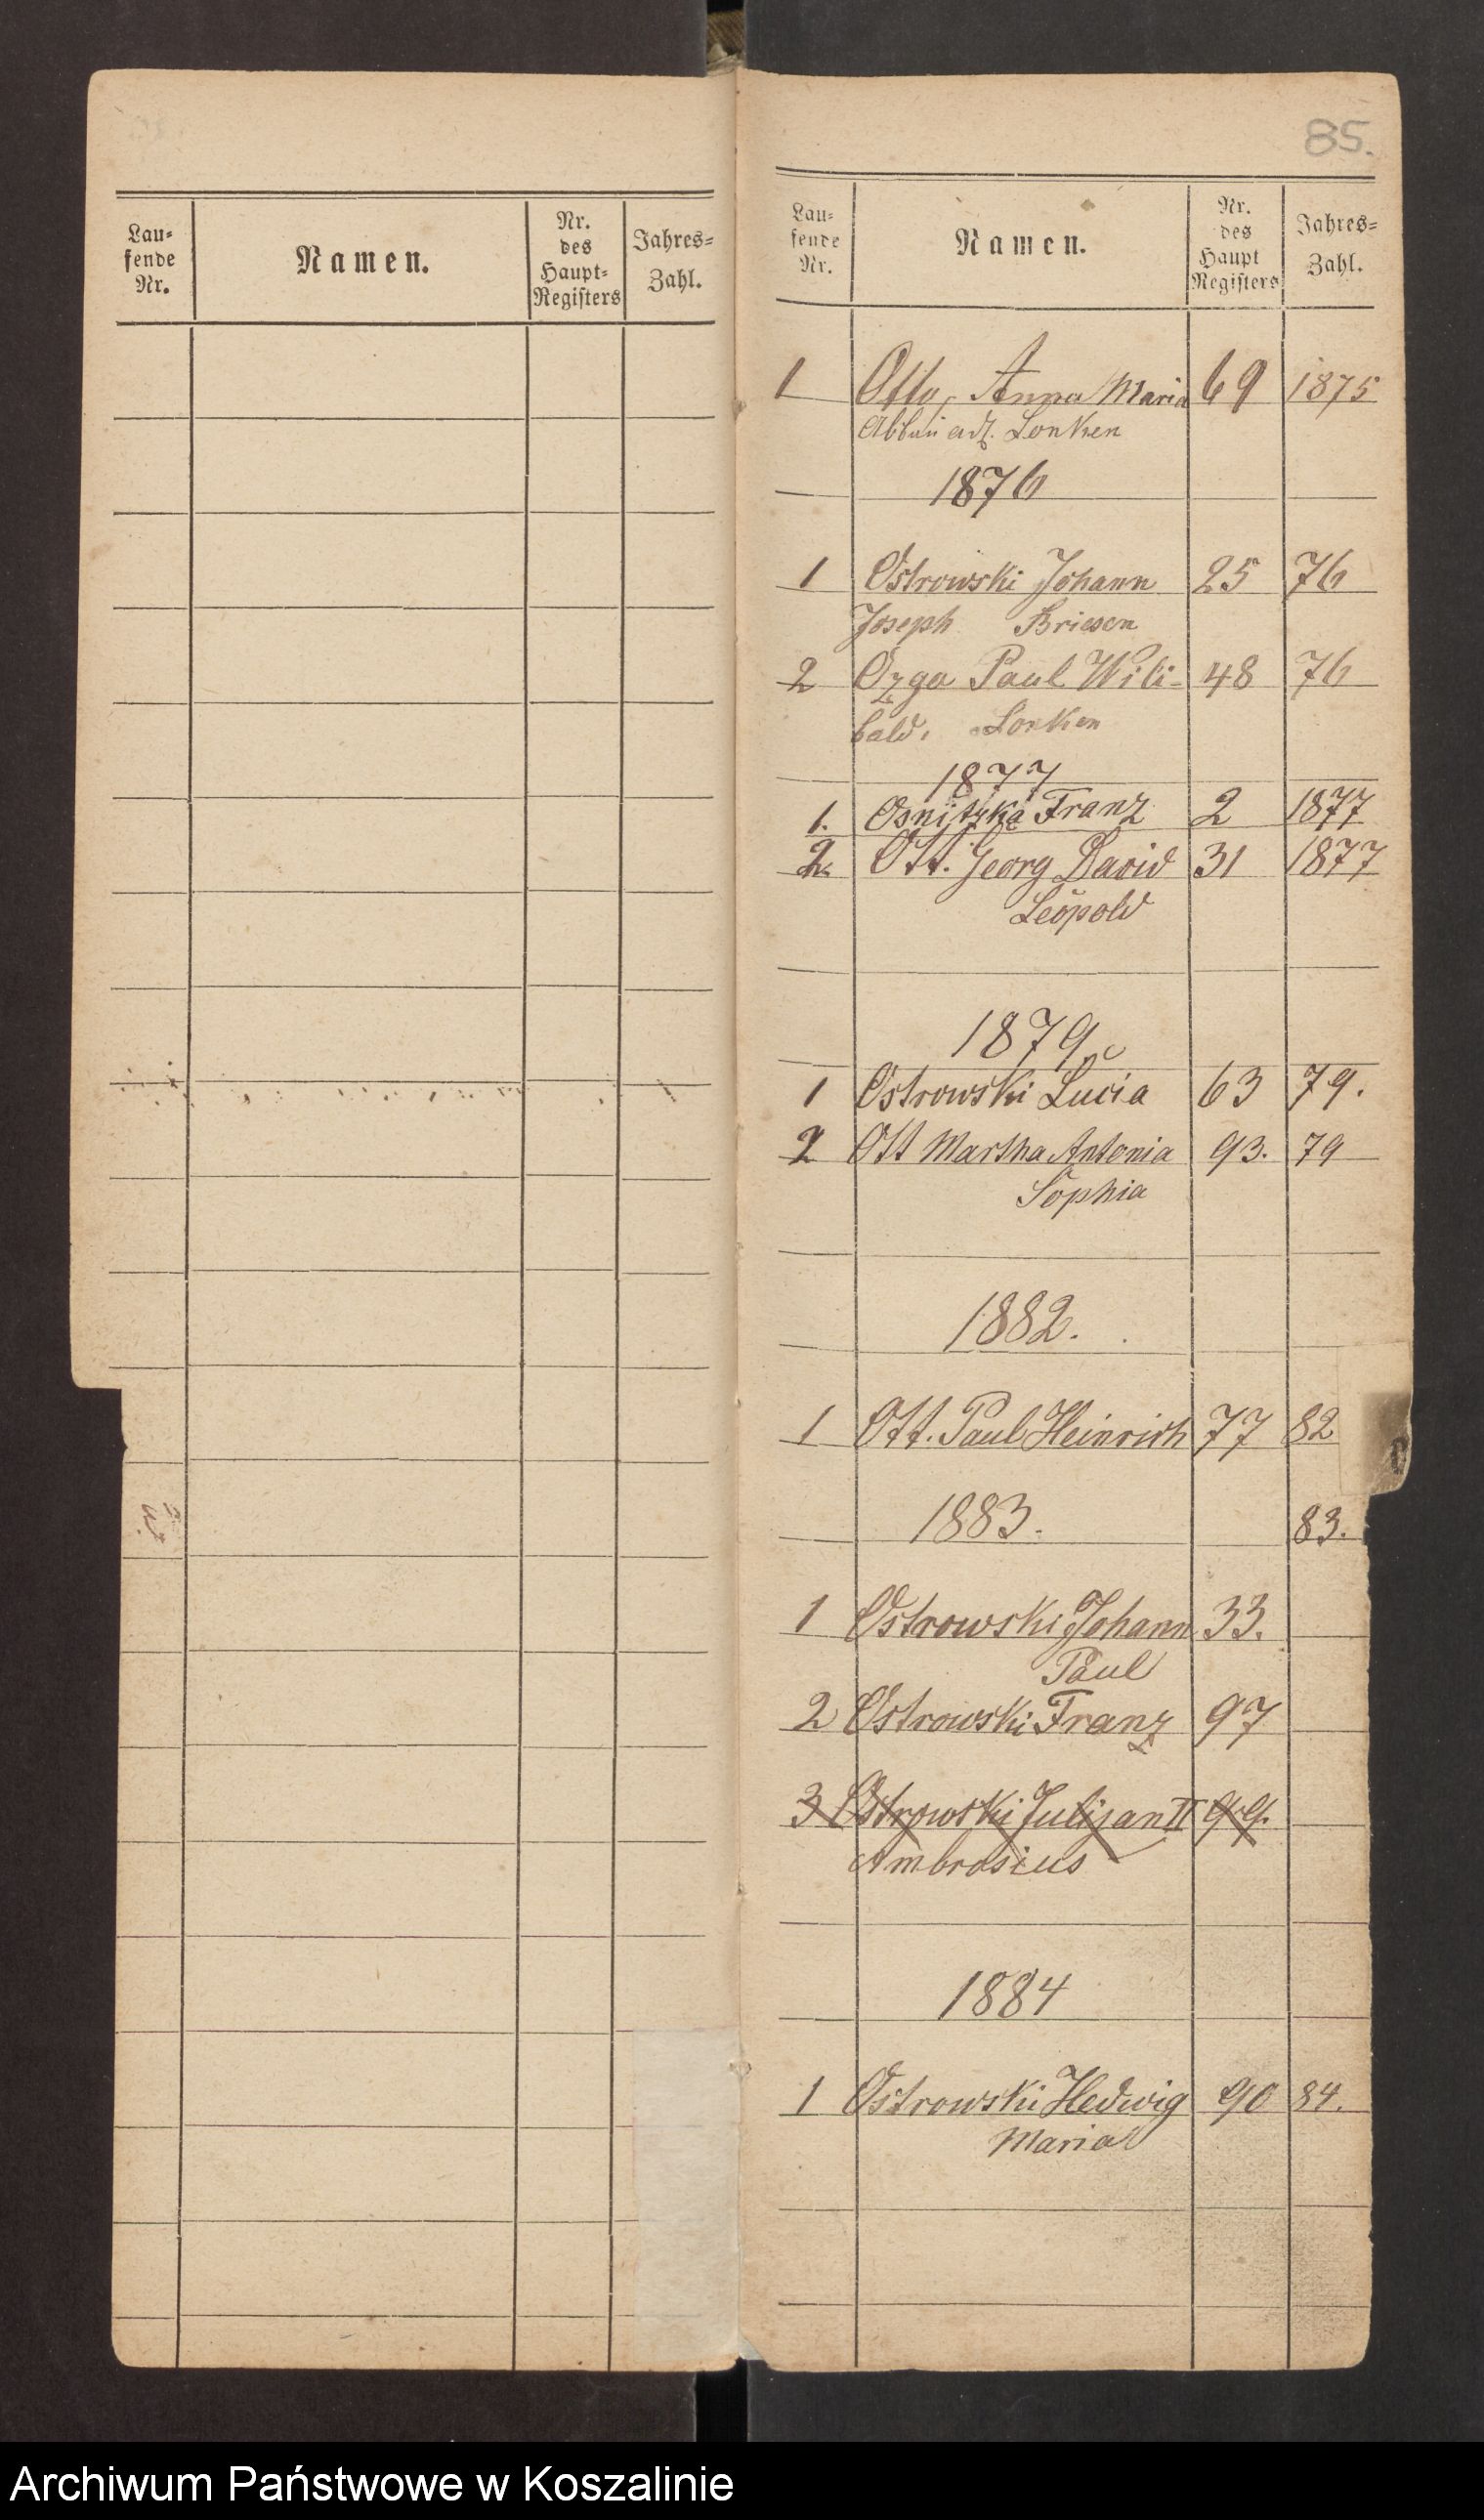 85.
Lau=
fende
Nr.
Namen.
Nr.
des
Haupt=
Registers
Jahres=
Zahl.
Lau=
fende
Nr.
Namen.
Nr.
des
Haupt
Registers
Jahres=
Zahl.
1 Otto, Anna Maria 69 1875
Abbau adl. Lonken
1876
1 Ostrowski Johann 25 76
Joseph Briesen
2 Ozga Paul Wili- 48 76
bald. Lonken
1877
1. Osnitzka Franz 2 1877
2. Ott. Georg David 31 1877
Leopold
1879
1 Ostrowski Lucia 63 79.
2 Ott Martha Antonia 93. 79
Sophia
1882.
1 Ott. Paul Heinrich 77 82
1883. 83.
1 Ostrowski Johann 33.
Paul
2 Ostrowski Franz 97
3 Ostrowski Julijan II
Ambrosius
1884
1 Ostrowski Hedwig 90 84.
Maria
Archiwum Państwowe w Koszalinie